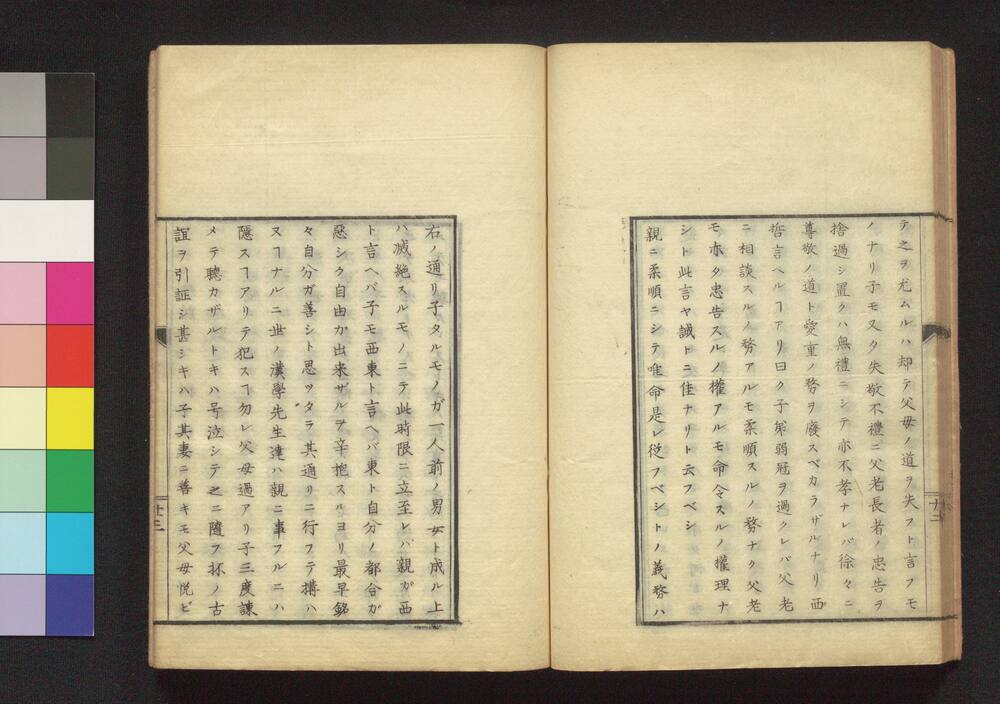 テ之ヲ尤ムルハ却テ父母ノ道ヲ失フト言フモ
ノナリ子モ又タ失敬不禮ニ父老長者ノ忠告ヲ
捨過シ置クハ無禮ニシテ亦不孝ナレバ徐々ニ
尊敬ノ道ト愛重ノ務ヲ廢スベカラザルナリ西
哲言ヘルヿアリ曰ク子弟弱冠ヲ過クレバ父老
ニ相談スルノ務アルモ柔順スルノ務ナク父老
モ亦タ忠告スルノ權アルモ命令スルノ權理ナ
シト此言ヤ誠トニ佳ナリト云フベシ
親ニ柔順ニシテ唯命是レ從フベシトノ義務ハ
十三
右ノ通リ子タルモノガ一人前ノ男女ト成ル上
ハ滅絶スルモノニテ此時限ニ立至レバ親ガ西
ト言ヘバ子モ西東ト言ヘバ東ト自分ノ都合ガ
惡シク自由ガ出来ザルヲ辛抱スルヨリ最早銘
々自分ガ善シト思ツタラ其通リニ行フテ搆ハ
ヌヿナルニ世ノ漢學先生達ハ親ニ事フルニハ
隱スヿアリテ犯スヿ勿レ父母過アリ子三度諌
メテ聽カザルトキハ号泣シテ之ニ隨フ抔ノ古
誼ヲ引証シ甚シキハ子其妻ニ善キモ父母悦ビ
十三